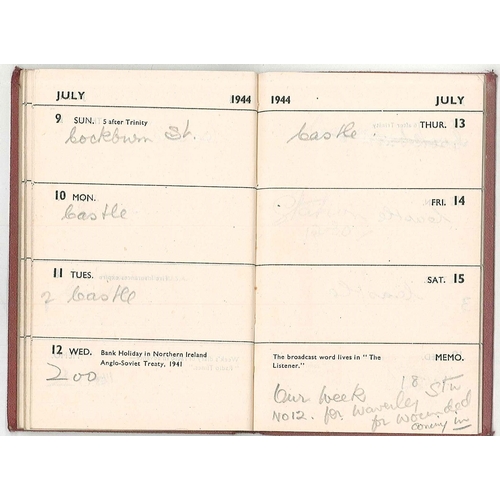 JULY 1944
9 SUN. 5 after Trinity
Cockburn St.
10 MON.
Castle
11 TUES.
2 Castle
12 WED. Bank Holiday in Northern Ireland
Anglo-Soviet Treaty, 1941
Zoo
1944 JULY
THUR. 13
Castle.
FRI. 14
SAT. 15
The broadcast word lives in "The MEMO.
Listener."
Our week 18 Stn
No12. for Waverley
for wounded
coming in